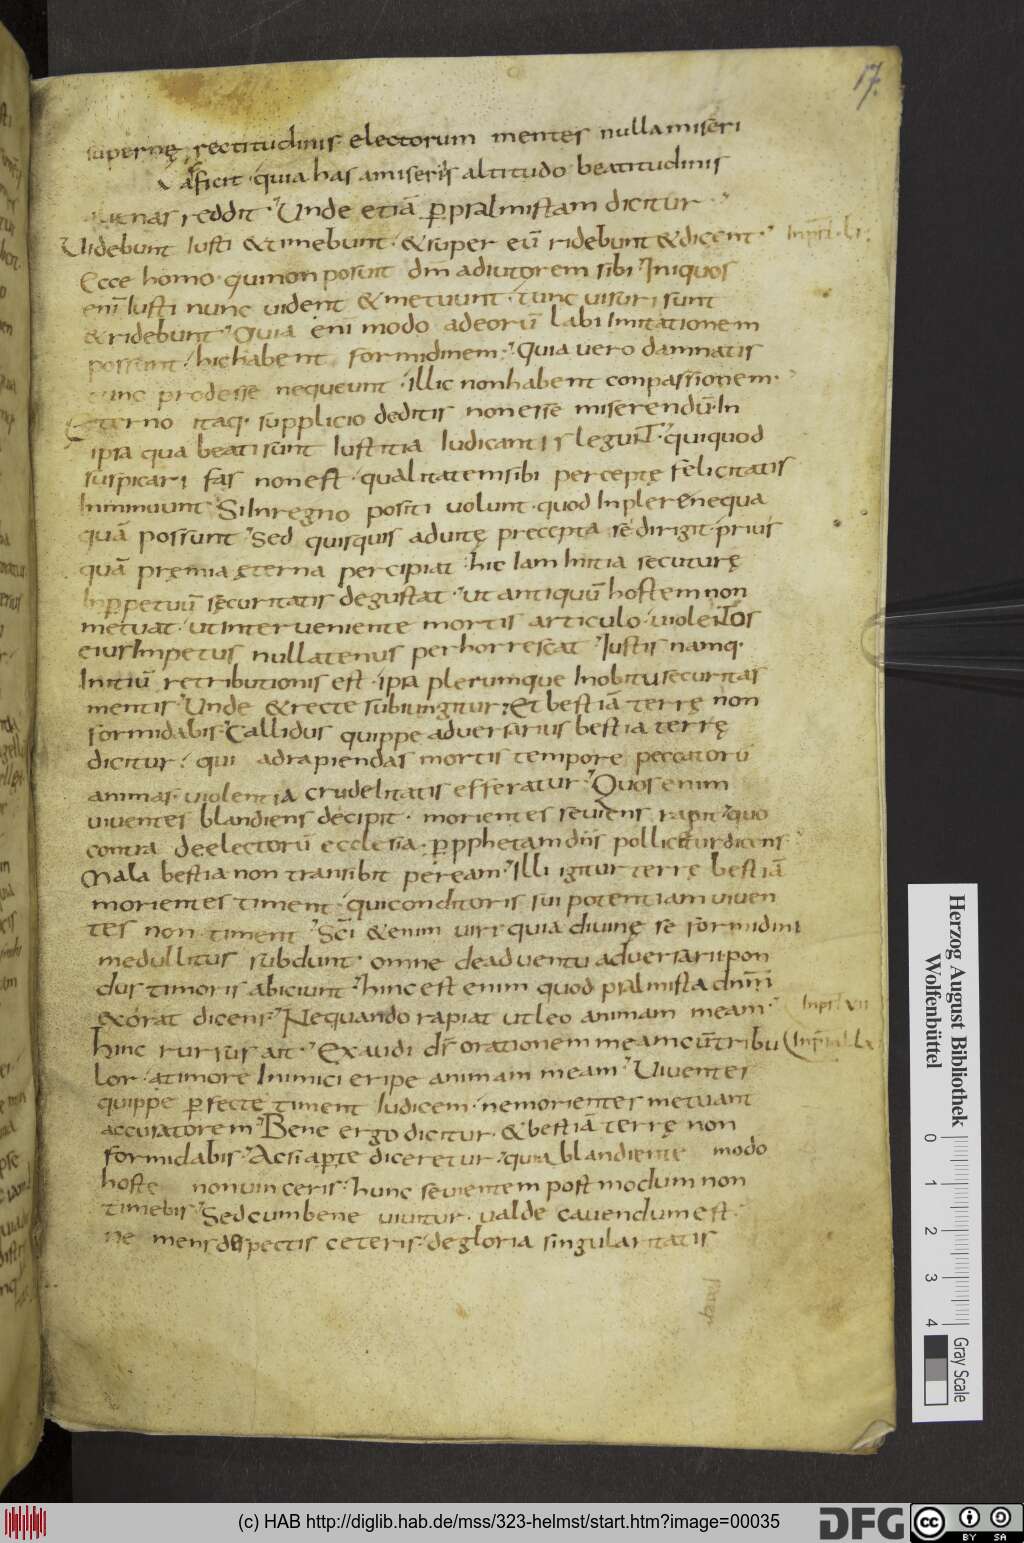 17.
supernę rectitudinis electorum mentes nulla miseri
aficit · quia has a miseriis altitudo beatitudinis
reddit · Unde etiã p̱ psalmistam dicitur ·
Uidebunt Iusti & timebunt · & super eũ ridebunt & dicent ·
Ecce homo · qui non posuit dm̃ adiutorem sibi · Iniquos
eni᷃ Iusti nunc uident & metuunt · tunc uisuri sunt
& ridebunt · Quia eni᷃ modo adeorũ labi Imitationem
possunt · hic habent formidinem · Quia uero damnatis
prodesse nequeunt · illic non habent conpassionem ·
ęterno itaq· supplicio deditis non esse miserendũ · In
ipsa qua beati sunt Iustitia Iudicantis legunt · qui quod
suspicari fas non est · qualitatem sibi perceptę felicitatis
Inminuunt · Si In regno positi uolunt · quod Inplere nequa
quã possunt · Sed quisquis ad uitę precepta se dirigit · prius
quã pręmia ęterna percipiat · hic Iam Initia secuturę
Inp̱petuũ sęcuritatis degustat · ut antiquũ hostem non
metuat · ut interueniente mortis articulo · uiolentos
eius Impetus nullatenus perhorrescat · Iustis namq·
Initiũ retributionis est · ipsa plerumque In obitu securitas
mentis · Unde & recte subiungitur · Et bestiã terrę non
formidabis · Callidus quippe aduersarius bestia terrę
dicitur · qui ad rapiendas mortis tempore peccatorũ
animas · uiolentia crudelitatis efferatur · Quos enim
uiuentes blandiens decipit · morientes seuiens rapit · quo
contra de electorũ ecclesia · p̱ p̱phetam dñs pollicitur dicens
Mala bestia non transibit per eam · Illi igitur terrę bestiã
morientes timent · qui conditoris sui potentiam uiuen
tes non timent · Sc̃i & enim uiri quia diuinę se formidini
medullitus subdunt · omne de aduentu aduersarii pon
dus timoris abiciunt · hinc est enim quod psalmista dnm̃
exorat dicens · Nequando rapiat ut leo animam meam ·
hinc rursus ait · Exaudi ds̃ orationem meam cũ tribu
lor · a timore Inimici eripe animam meam · Uiuentes
quippe p̱fecte timent Iudicem · ne morientes metuant
accusatorem · Bene ergo dicitur · & bestiã terrę non
formidabis · Ac si ap̱te diceretur · quia blandiente modo
hoste non uinceris · hunc seuientem postmodum non
timebis · Sed cum bene uiuitur · ualde cauendum est ·
ne mens despectis ceteris · de gloria singularitatis
Herzog August Bibliothek
Wolfenbüttel
0 1 2 3 4
Gray Scale
(c) HAB http://diglib.hab.de/mss/323-helmst/start.htm?image=00035
DFG
cc BY SA